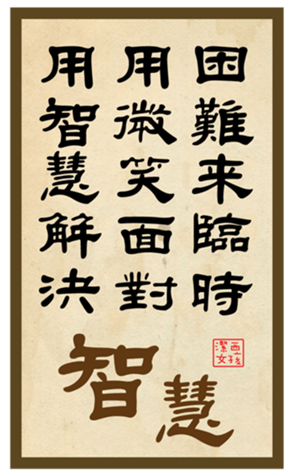 困難来臨時
用微笑面對
用智慧解決
智慧